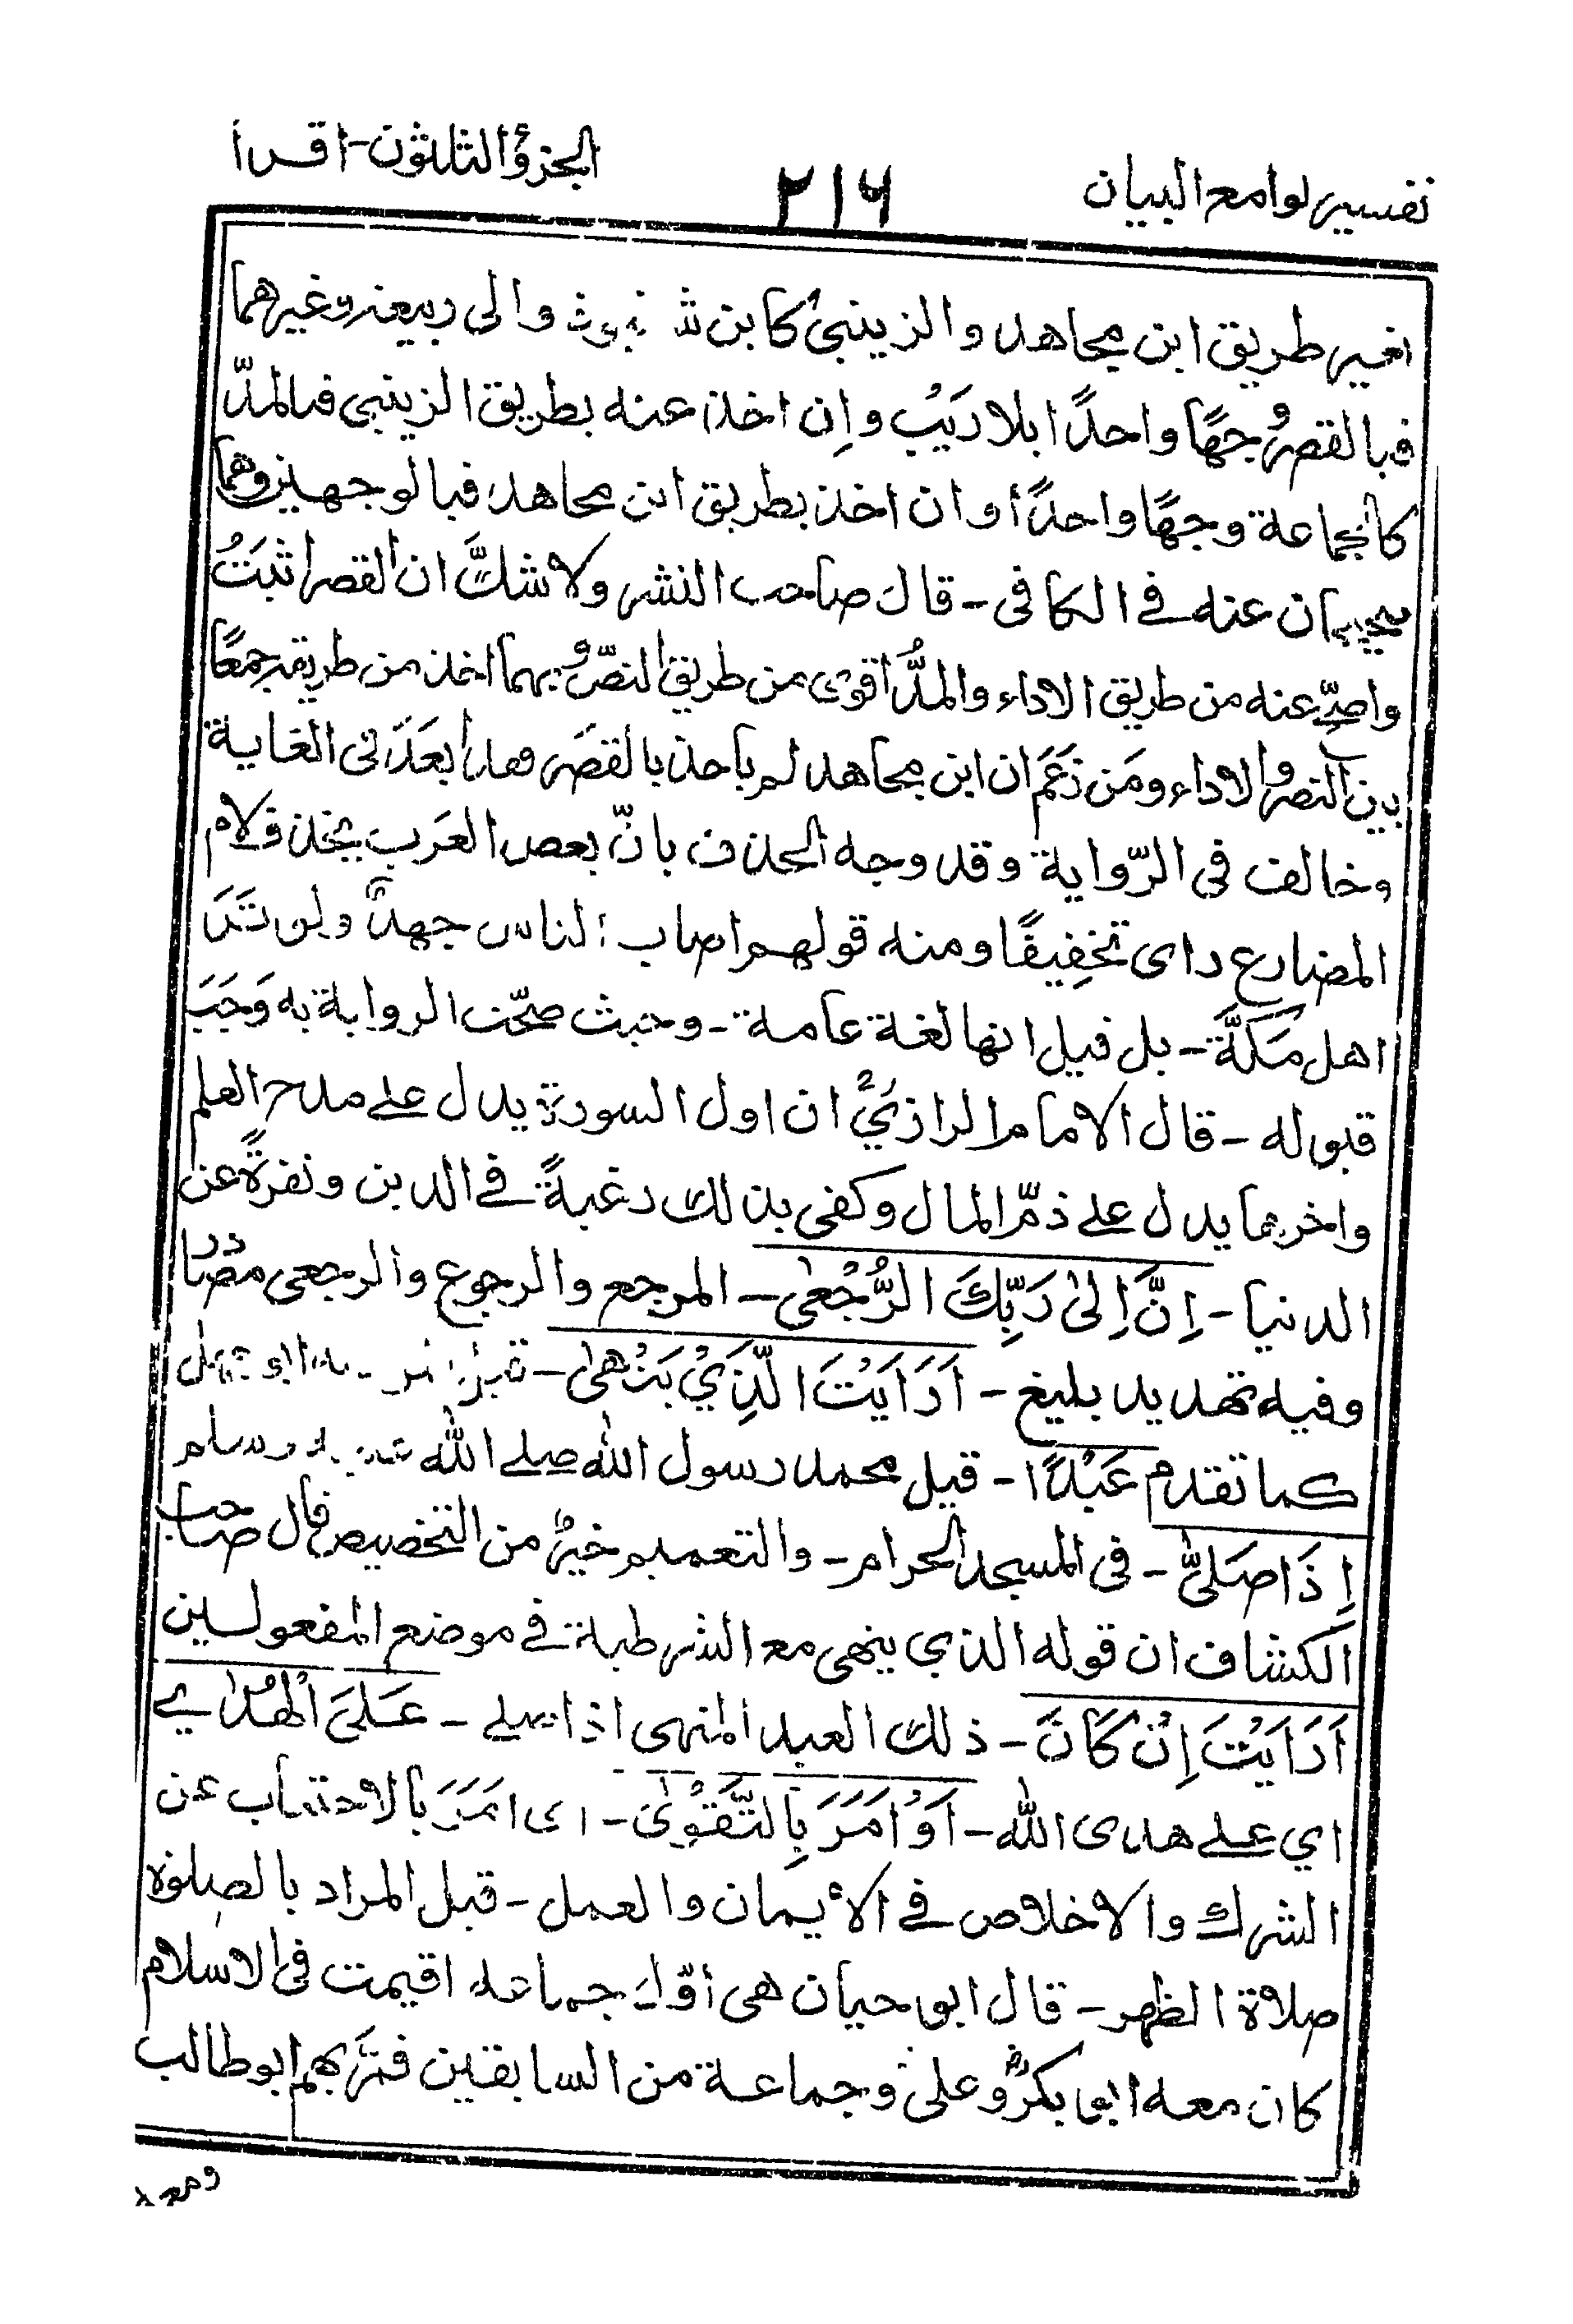 تفسير لوامع البيان ٢١٦ الجزؤ الثلثون - اقرأ
بغير طريق ابن مجاهد والزينبي كابن شنبوذ وابى ربيعة وغيرهما
فبالقصر وجهًا واحدًا بلا ريب وان اخذ عنه بطريق الزينبي فبالمدّ
كالجماعة وجهًا واحدًا وان اخذ بطريق ابن مجاهد فبالوجهين وهما
صحيحان عنه في الكافى - قال صاحب النشر ولا شكّ ان القصر اثبت
واصحّ عنه من طريق الاداء والمدّ اقوى من طريق النصّ وبهما اخذ من طريقه جمعًا
بين النص والاداء ومن زعم ان ابن مجاهد لم ياخذ بالقصر فقد ابعد فى الغاية
وخالف فى الرّواية وقد وجه الحذف بانّ بعض العرب يحذف لام
المضارع رأى تخفيفًا ومنه قولهم اصاب الناس جهدٌ ولو تَرَ
اهل مكّة - بل قيل انها لغة عامة - وحيث صحّت الرواية به وجب
قبوله - قال الامام الرازيؒ ان اول السورة يدل على مدح العلم
واخرها يدل على ذمّ المال وكفى بذلك رغبةً في الدين ونفرةً عن
الدنيا - اِنَّ اِلىٰ رَبِّكَ الرُّجْعىٰ - المرجع والرجوع والرجعى مصادر
وفيه تهديد بليغ - اَرَاَيْتَ الَّذِيْ يَنْهىٰ - ابو جهل
كما تقدم عَبْدًا - قيل محمد رسول الله صلى الله عليه وسلم
اِذَا صَلّىٰ - فى المسجد الحرام - والتعميم خيرٌ من التخصيص قال صاحب
الكشاف ان قوله الذي ينهى مع الشرطية في موضع المفعولين
اَرَاَيْتَ اِنْ كَانَ - ذلك العبد المنهى اذا صلى - عَلَى الْهُدٰى
اي على هدى الله - اَوْ اَمَرَ بِالتَّقْوىٰ - اى امر بالاجتناب عن
الشرك والاخلاص في الأيمان والعمل - قيل المراد بالصلوٰة
صلاة الظهر - قال ابو حيان هى أوّل جماعة اقيمت فى الاسلام
كان معه ابو بكرؓ وعلىؓ وجماعة من السابقين فمرّ بهم ابو طالب
ومعه